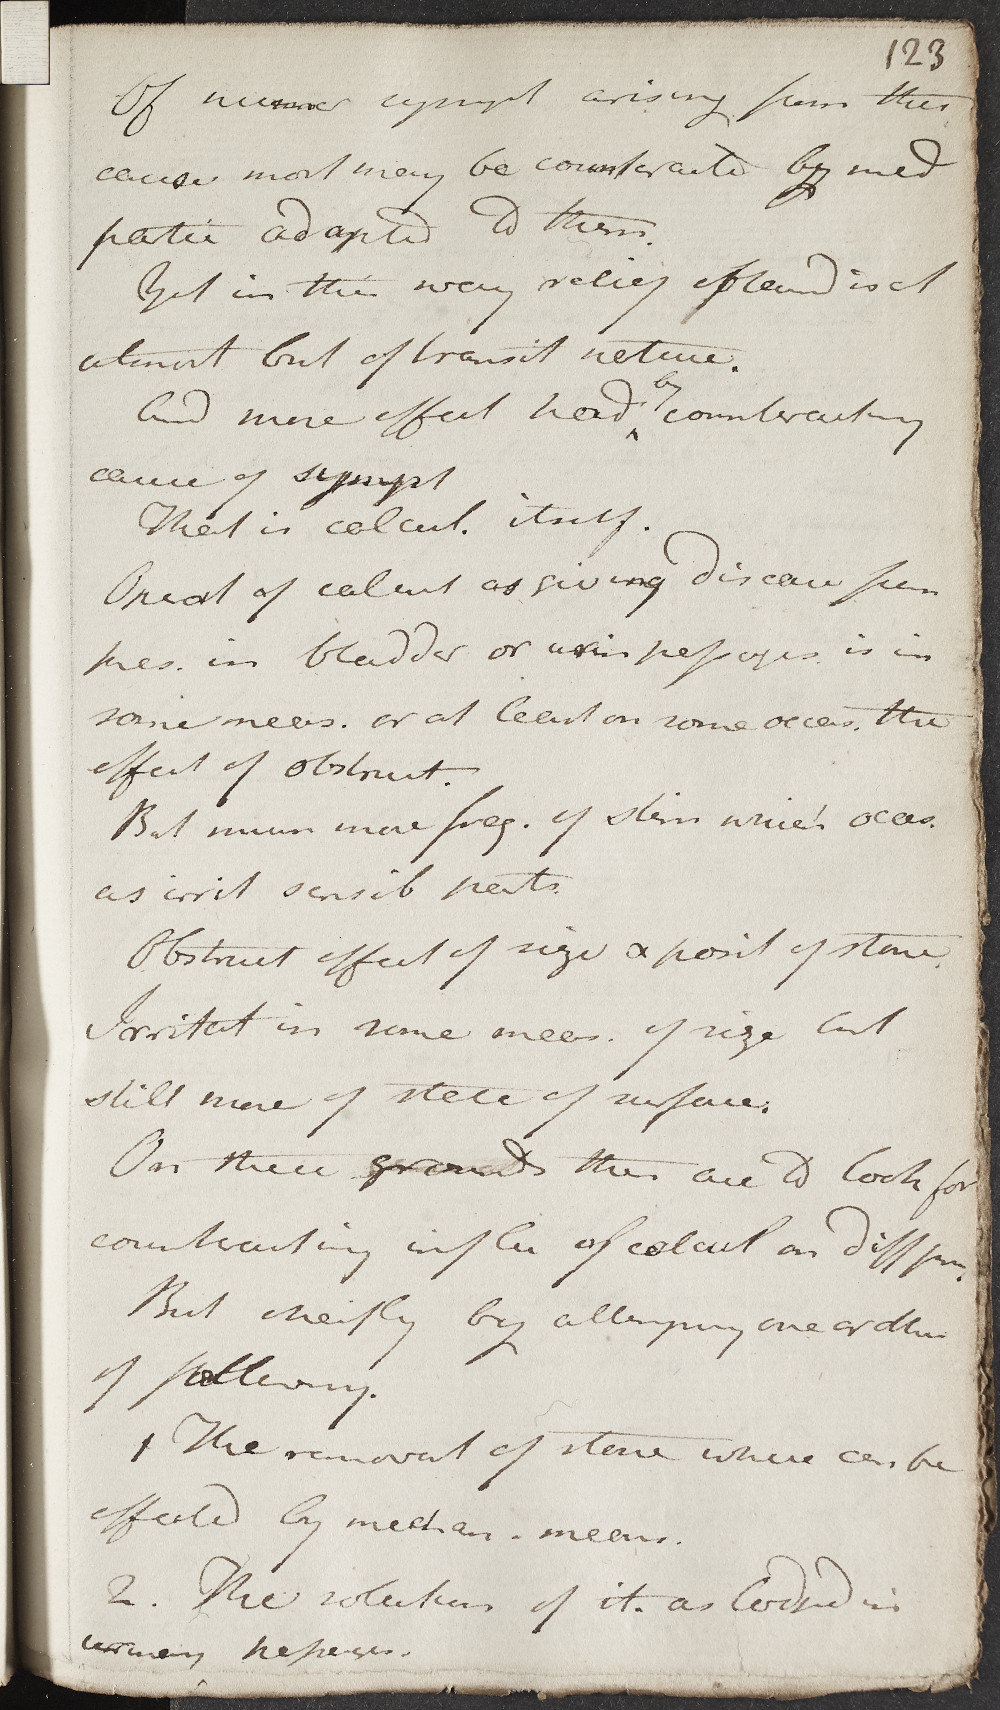 123
Of numer sympt arising from this
cause most may be counteracted by med
partic adapted to them.
Yet in this way relief obtaind is at
utmost but of transit nature.
And more effect had by counteracting
cause of sympt
That is calcul. itself.
Operat of calcul as giving disease from
pres. in bladder or urin passages is in
some meas. or at least on some occas. the
effect of obstruct.
But much more freq. of stim which occas.
as irrit sensib parts.
Obstruct effect of size & posit of stone.
Irritat in some meas. of size but
still more of state of surface.
On these grounds then are to look for
counteracting influ of calcul on diff prin.
But cheifly by attempting one or other
of following.
1 The removal of stone where can be
effected by mechan. means.
2. The solution of it. as lodged in
urinary passages.